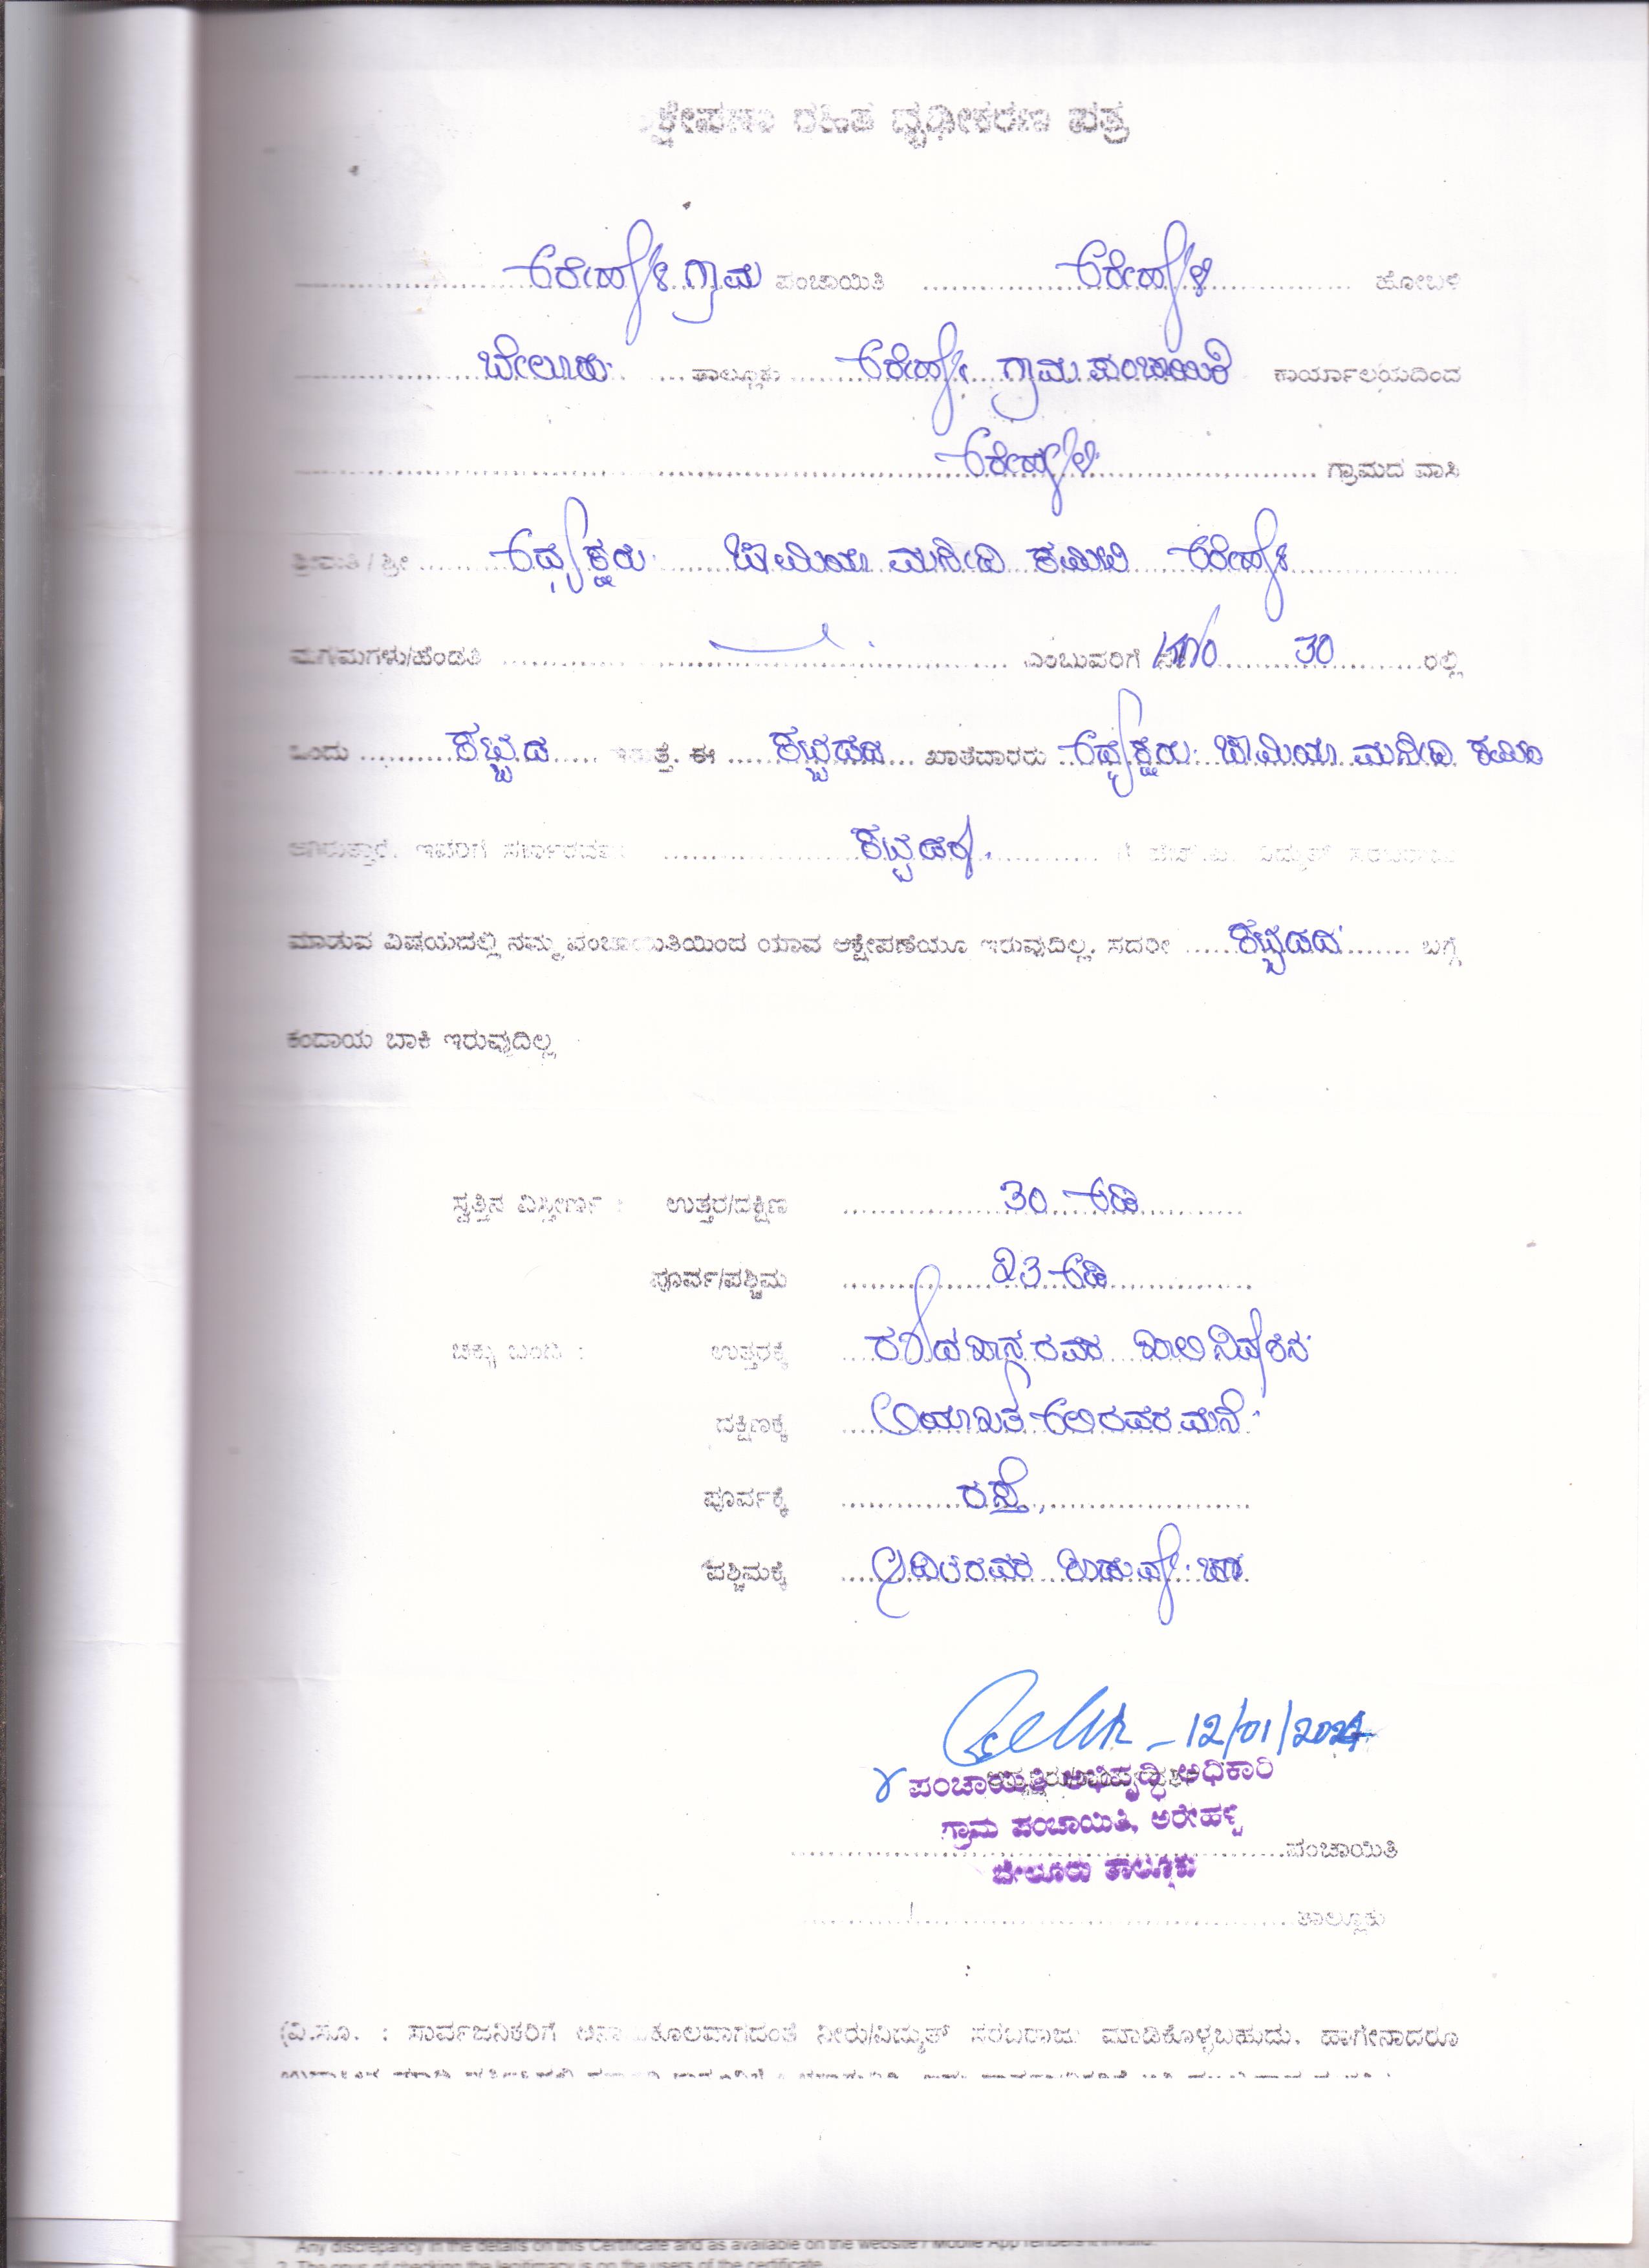 ಕ್ಷೇಪಣಾ ರಹಿತ ದೃಢೀಕರಣ ಪತ್ರ
ಅರೇಹಳ್ಳಿ ಗ್ರಾಮ ಪಂಚಾಯಿತಿ ಅರೇಹಳ್ಳಿ ಹೋಬಳಿ
ಬೇಲೂರು ತಾಲ್ಲೂಕು ಅರೇಹಳ್ಳಿ ಗ್ರಾಮ ಪಂಚಾಯಿತಿ ಕಾರ್ಯಾಲಯದಿಂದ
ಅರೇಹಳ್ಳಿ ಗ್ರಾಮದ ವಾಸಿ
ಶ್ರೀಮತಿ / ಶ್ರೀ ಅಧ್ಯಕ್ಷರು ಜಾಮಿಯಾ ಮಸೀದಿ ಕಮಿಟಿ ಅರೇಹಳ್ಳಿ
ಮಗ/ಮಗಳು/ಹೆಂಡತಿ ಎಂಬುವರಿಗೆ 30 ರಲ್ಲಿ
ಒಂದು ಕಟ್ಟಡ ಇರುತ್ತೆ. ಈ ಕಟ್ಟಡದ ಖಾತೆದಾರರು ಅಧ್ಯಕ್ಷರು ಜಾಮಿಯಾ ಮಸೀದಿ ಕಮಿಟಿ
ಆಗಿರುತ್ತಾರೆ. ಇವರಿಗೆ ಕಟ್ಟಡಕ್ಕೆ ವಿದ್ಯುತ್ ಸರಬರಾಜು
ಮಾಡುವ ವಿಷಯದಲ್ಲಿ ನಮ್ಮ ಪಂಚಾಯಿತಿಯಿಂದ ಯಾವ ಆಕ್ಷೇಪಣೆಯೂ ಇರುವುದಿಲ್ಲ. ಸದರೀ ಕಟ್ಟಡದ ಬಗ್ಗೆ
ಕಂದಾಯ ಬಾಕಿ ಇರುವುದಿಲ್ಲ
ಸ್ವತ್ತಿನ ವಿಸ್ತೀರ್ಣ : ಉತ್ತರ/ದಕ್ಷಿಣ 30 ಅಡಿ
ಪೂರ್ವ/ಪಶ್ಚಿಮ 23 ಅಡಿ
ಚಕ್ಕು ಬಂದಿ : ಉತ್ತರಕ್ಕೆ ರವರ ಖಾಲಿ ನಿವೇಶನ
ದಕ್ಷಿಣಕ್ಕೆ ಲಿಯಾಖತ್ ಅಲಿ ರವರ ಮನೆ
ಪೂರ್ವಕ್ಕೆ ರಸ್ತೆ
ಪಶ್ಚಿಮಕ್ಕೆ ರವರ
12/01/2024
ಪಂಚಾಯಿತಿ ಅಭಿವೃದ್ಧಿ ಅಧಿಕಾರಿ
ಗ್ರಾಮ ಪಂಚಾಯಿತಿ, ಅರೇಹಳ್ಳಿ
ಪಂಚಾಯಿತಿ
ಬೇಲೂರು ತಾಲ್ಲೂಕು
ತಾಲ್ಲೂಕು
(ವಿ.ಸೂ. : ಸಾರ್ವಜನಿಕರಿಗೆ ಅನಾನುಕೂಲವಾಗದಂತೆ ನೀರು/ವಿದ್ಯುತ್ ಸರಬರಾಜು ಮಾಡಿಕೊಳ್ಳಬಹುದು. ಹಾಗೇನಾದರೂ
Any discrepancy in the details on this Certificate and as available on the website / Mobile App renders it invalid.
2. The onus of checking the legitimacy is on the users of the certificate